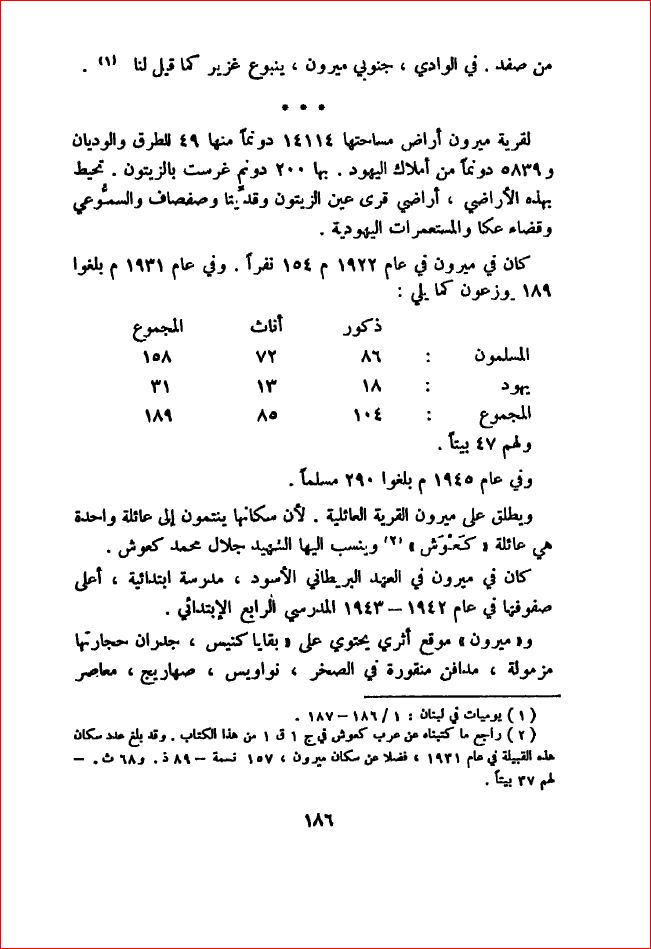 من صفد . في الوادي ، جنوبي ميرون ، ينبوع غزير كما قيل لنا (١) .
* * *
لقرية ميرون أراض مساحتها ١٤١١٤ دونماً منها ٤٩ للطرق والوديان
و ٥٨٣٩ دونماً من أملاك اليهود . بها ٢٠٠ دونم غرست بالزيتون . تحيط
بهذه الأراضي ، أراضي قرى عين الزيتون وقدّيتا وصفصاف والسمّوعي
وقضاء عكا والمستعمرات اليهودية .
كان في ميرون في عام ١٩٢٢ م ١٥٤ نفراً . وفي عام ١٩٣١ م بلغوا
١٨٩ يوزعون كما يلي :
ذكور أناث المجموع
المسلمون : ٨٦ ٧٢ ١٥٨
يهود : ١٨ ١٣ ٣١
المجموع : ١٠٤ ٨٥ ١٨٩
ولهم ٤٧ بيتاً .
وفي عام ١٩٤٥ م بلغوا ٢٩٠ مسلماً .
ويطلق على ميرون القرية العائلية . لأن سكانها ينتمون إلى عائلة واحدة
هي عائلة « كَعْوَش » (٢) وينسب اليها الشهيد جلال محمد كعوش .
كان في ميرون في العهد البريطاني الأسود ، مدرسة ابتدائية ، أعلى
صفوفها في عام ١٩٤٢ – ١٩٤٣ المدرسي الرابع الإبتدائي .
و« ميرون » موقع أثري يحتوي على « بقايا كنيس ، جدران حجارتها
مزمولة ، مدافن منقورة في الصخر ، نواويس ، صهاريج ، معاصر
(١) يوميات في لبنان : ١ / ١٨٦ – ١٨٧ .
(٢) راجع ما كتبناه عن عرب كعوش في ج ١ ق ١ من هذا الكتاب . وقد بلغ عدد سكان
هذه القبيلة في عام ١٩٣١ ، فضلا عن سكان ميرون ، ١٥٧ نسمة – ٨٩ ذ . و٦٨ ث . –
لهم ٣٧ بيتاً .
١٨٦